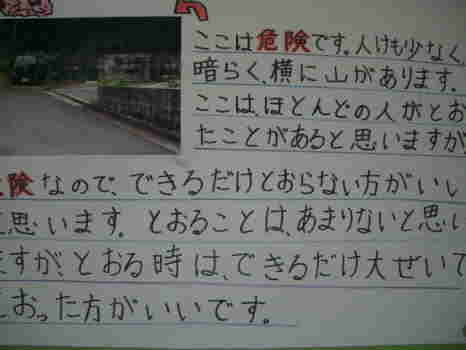 ここは危険です。人けも少なく、
暗らく、横に山があります。
ここは、ほとんどの人がとお
たことがあると思いますが
険なので、できるだけとおらない方がいい
思います。とおることは、あまりないと思い
ますが、とおる時は、できるだけ大ぜいで
おった方がいいです。